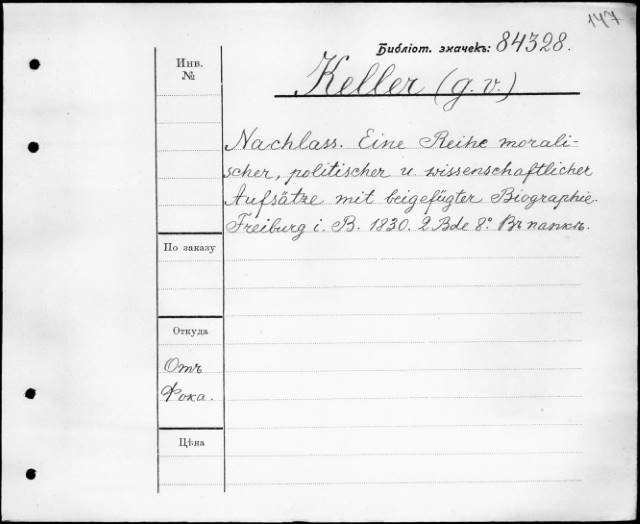 147
Библіот. значекъ: 84328.
Инв.
№
Keller (g. v.)
Nachlass. Eine Reihe morali-
scher, politischer u. wissenschaftlicher
Aufsätze mit beigefügter Biographie.
Freiburg i. B. 1830. 2 Bde 8°. Въ папкѣ.
По заказу
Откуда
Отъ
Фока.
Цѣна